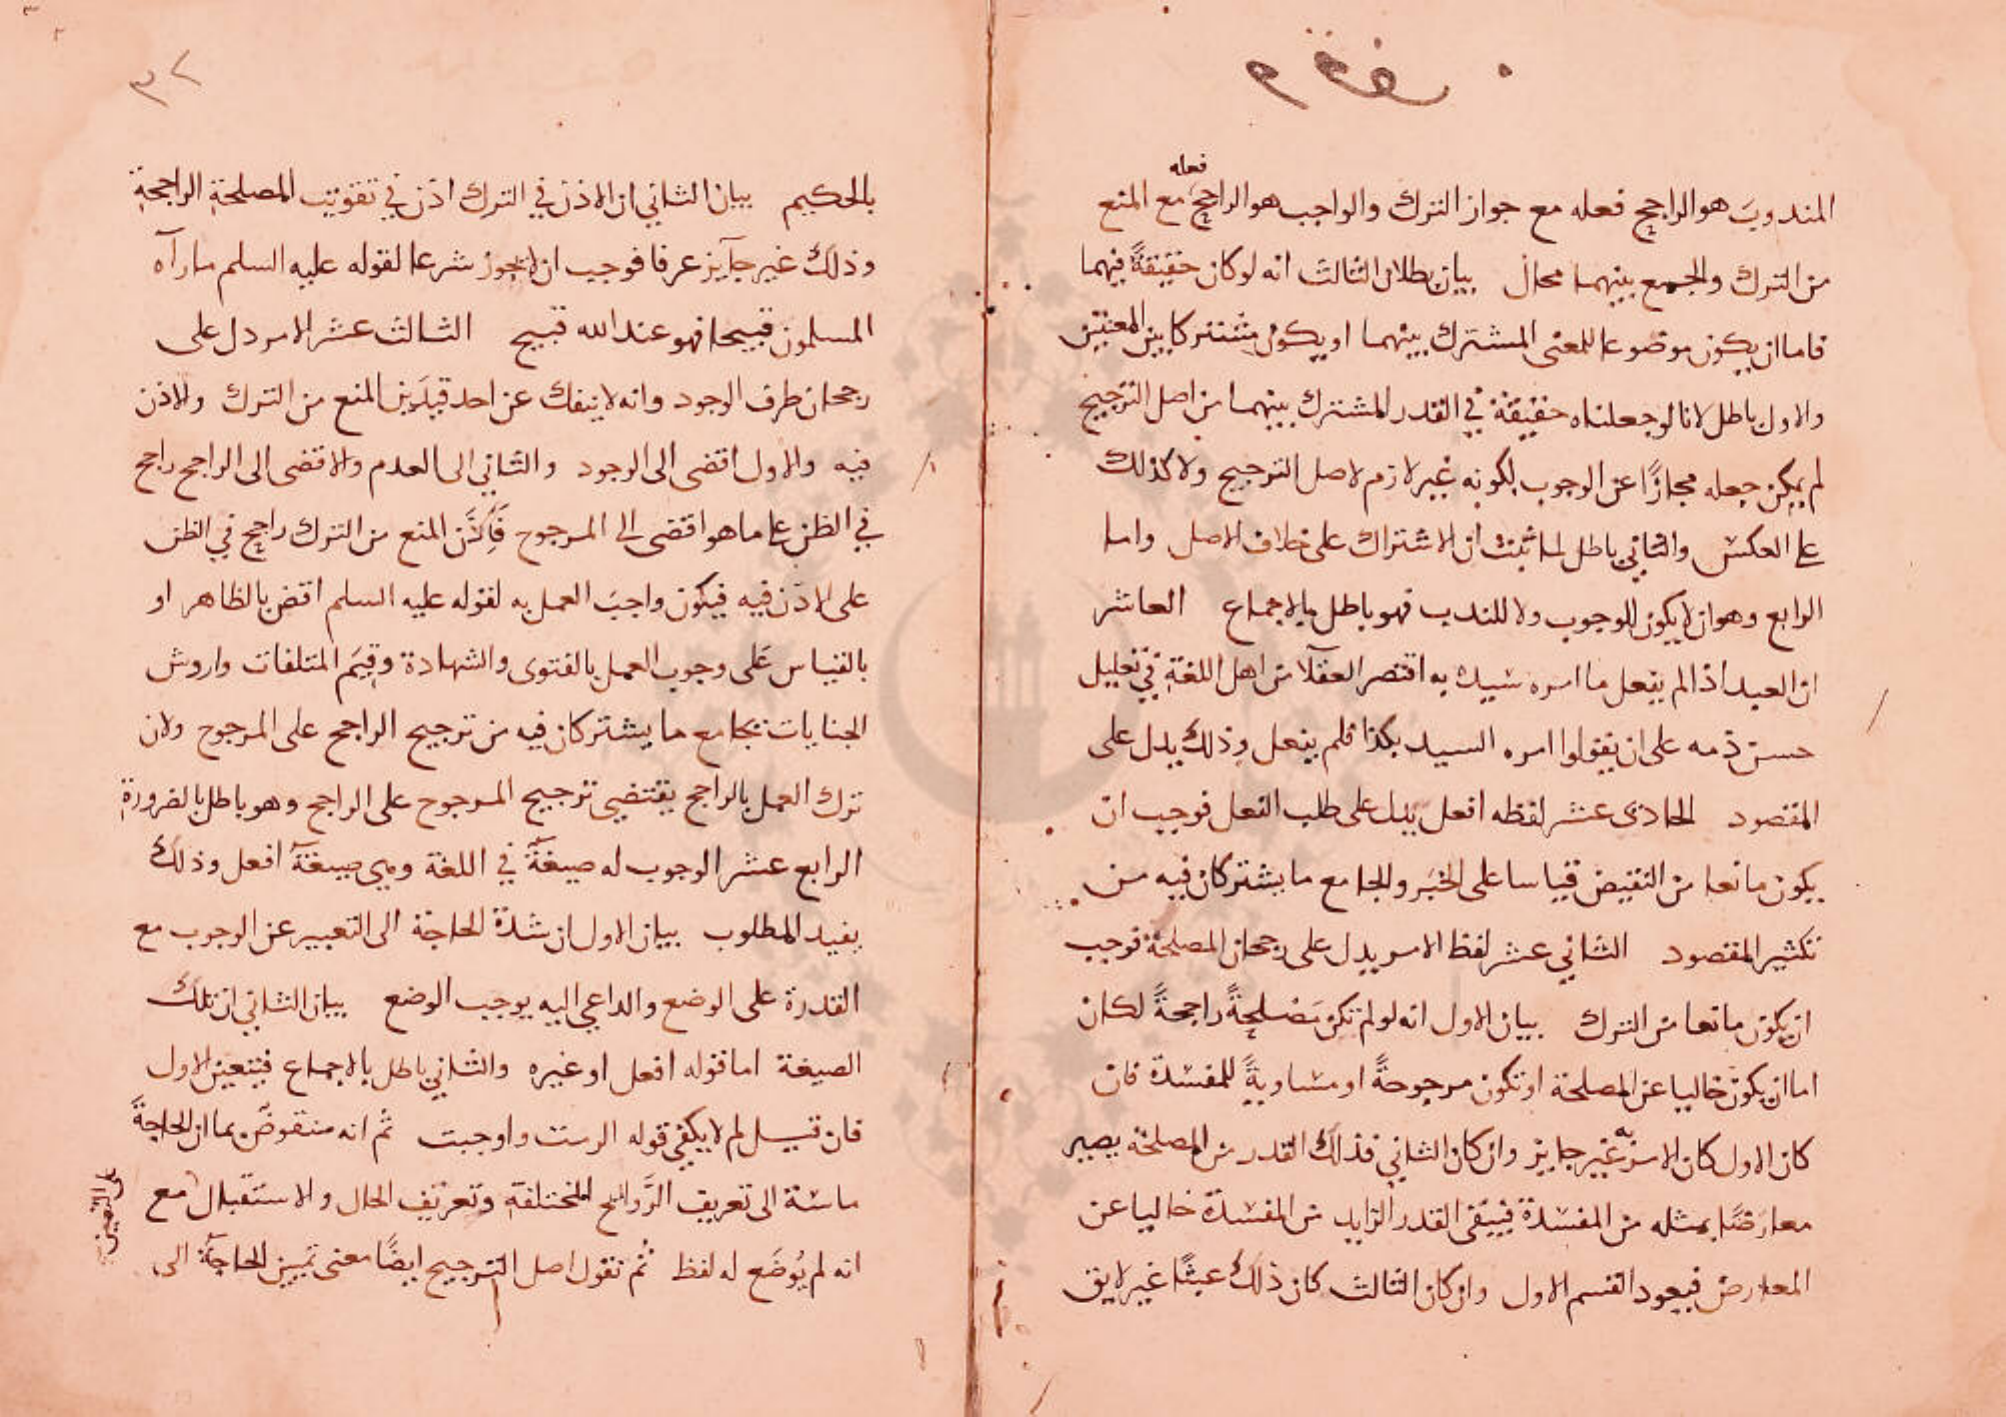 المندوب هو الراجح فعله مع جواز الترك والواجب هو الراجح فعله مع المنع
من الترك والجمع بينهما محال بيان بطلان الثالث انه لو كان حقيقةً فيهما
فاما ان يكون موضوعا للمعنى المشترك بينهما او يكون مشتركا بين المعنيين
والاول باطل لانا لو جعلناه حقيقة في القدر المشترك بينهما من اصل الترجيح
لم يمكن جعله مجازًا عن الوجوب لكونه غير لازم لاصل الترجيح ولا كذلك
على العكس والثاني باطل لما ثبت ان الاشتراك على خلاف الاصل واما
الرابع وهو ان لا يكون للوجوب ولا للندب فهو باطل بالاجماع العاشر
ان العبد اذا لم يفعل ما امره سيده به اقتصر العقلآ من اهل اللغة في تعليل
حسن ذمه على ان يقولوا امره السيد بكذا فلم يفعل وذلك يدل على
المقصود الحادى عشر لفظه افعل يدل على طلب الفعل فوجب ان
يكون مانعا من النقيض قياسا على الخبر والجامع ما يشتركان فيه من
تكثير المقصود الثاني عشر لفظ الامر يدل على رجحان المصلحة فوجب
ان يكون مانعا من الترك بيان الاول انه لو لم تكن مَصْلحةً راجحةً لكان
اما ان يكون خاليا عن المصلحة او تكون مرجوحةً او مساويةً للمفسدة فان
كان الاول كان الامر به غير جايز وان كان الثاني فذلك القدر من المصلحة يصير
معارَضًا بمثله من المفسدة فيبقى القدر الزايد من المفسدة خاليا عن
المعارض فيعود القسم الاول وان كان الثالث كان ذلك عبثًا غير لايق
بالحكيم بيان الثاني ان الاذن في الترك اذن في تفويت المصلحة الراجحة
وذلك غير جآيز عرفا فوجب ان لا يجوز شرعا لقوله عليه السلم مارآه
المسلمون قبيحا فهو عند الله قبيح الثالث عشر الامر دل على
رجحان طرف الوجود وانه لا ينفك عن احد قيدَين المنع من الترك والاذن
فيه والاول افضى الى الوجود والثاني الى العدم والافضى الى الراجح راجح
في الظن على ما هو افضى الى المرجوح فَاِذَن المنع من الترك راجح في الظن
على الاذن فيه فيكون واجبَ العمل به لقوله عليه السلم اقض بالظاهر او
بالقياس عَلى وجوب العمل بالفتوى والشهادة وقِيَم المتلفات واروش
الجنايات بجامع ما يشتركان فيه من ترجيح الراجح على المرجوح ولان
ترك العمل بالراجح يقتضي ترجيح المرجوح على الراجح وهو باطل بالضرورة
الرابع عشر الوجوب له صيغةٌ في اللغة وهي صيغة افعل وذلك
يفيد المطلوب بيان الاول ان شدة الحاجة الى التعبير عن الوجوب مع
القدرة على الوضع والداعي اليه يوجب الوضع بيان الثاني ان تلك
الصيغة اما قوله افعل او غيره والثاني باطل بالاجماع فيتعين الاول
فان قيل لم لا يكفي قوله الزمت واوجبت ثم انه منقوضٌ بما ان الحاجةَ
ماسة الى تعريف الرَّوائح المختلفة وتعريف الحال والاستقبال مع
على التعيين
انه لم يُوضَع له لفظ ثم نقول اصل الترجيح ايضًا معنى تمس الحاجة الى